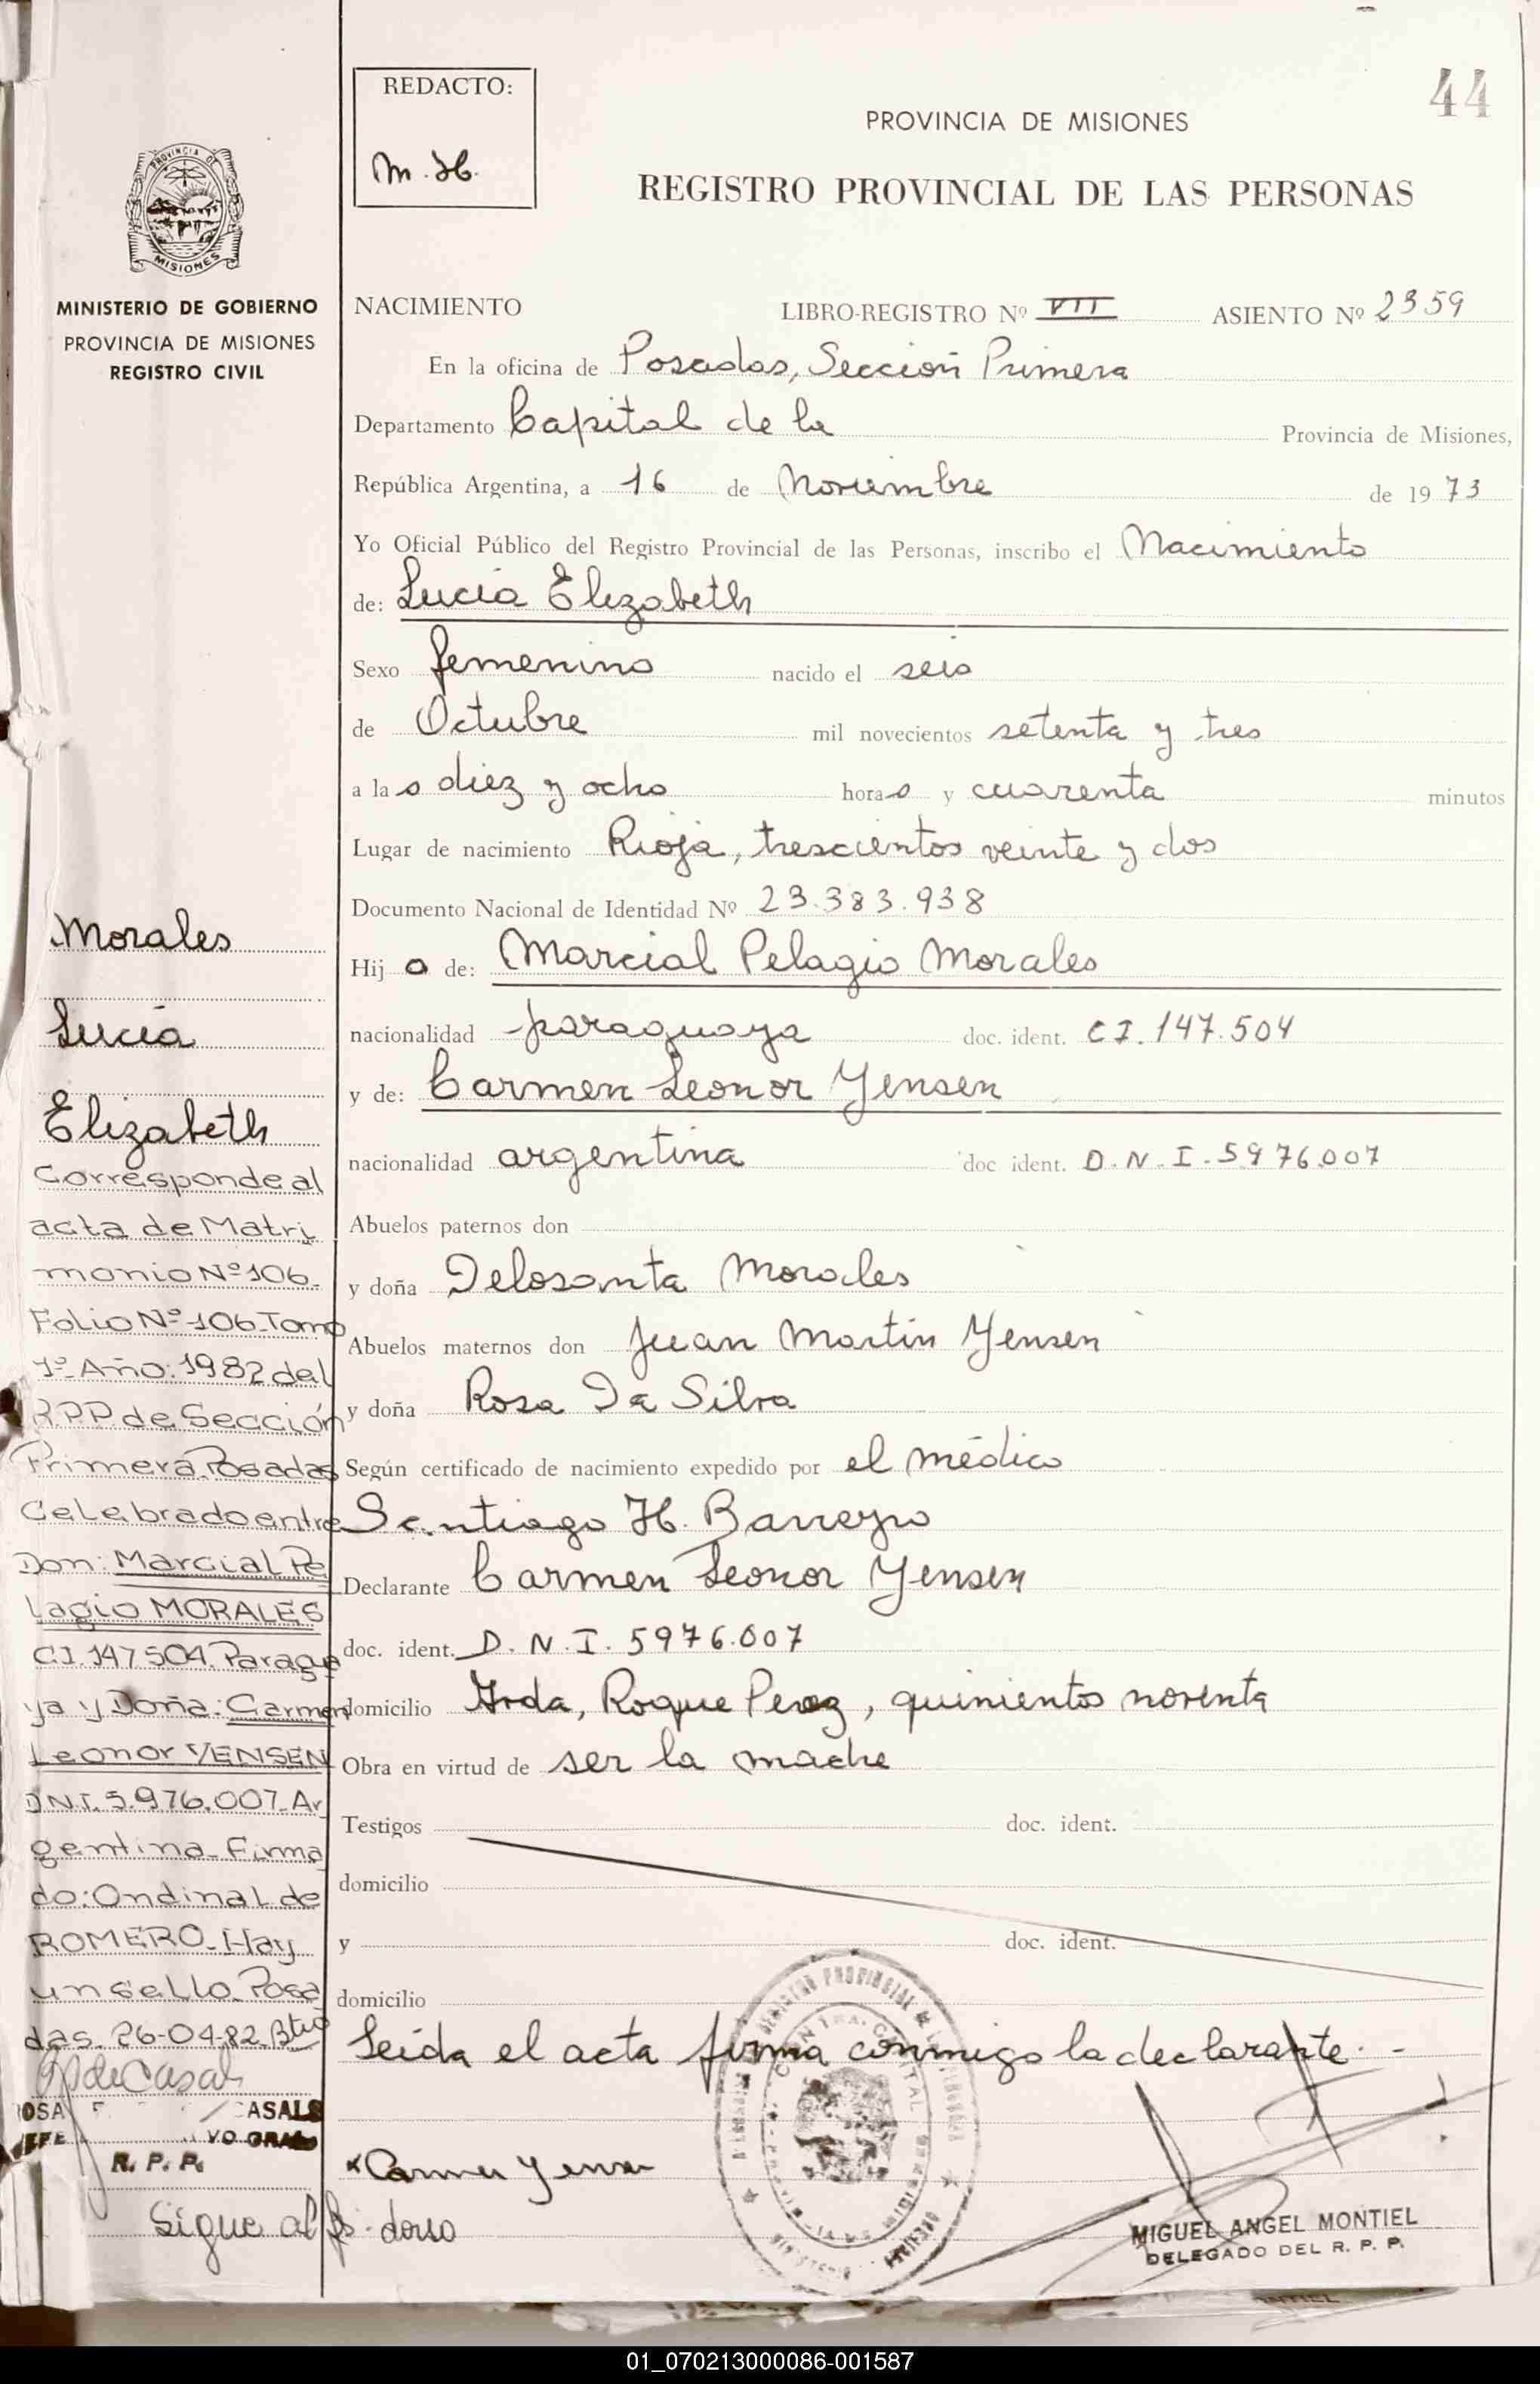 44
REDACTO:
M. H.
PROVINCIA DE MISIONES
REGISTRO PROVINCIAL DE LAS PERSONAS
PROVINCIA DE
MISIONES
MINISTERIO DE GOBIERNO
PROVINCIA DE MISIONES
REGISTRO CIVIL
NACIMIENTO LIBRO-REGISTRO Nº VII ASIENTO Nº 2359
En la oficina de Posadas, Sección Primera
Departamento Capital de la Provincia de Misiones,
República Argentina, a 16 de Noviembre de 1973
Yo Oficial Público del Registro Provincial de las Personas, inscribo el Nacimiento
de: Lucía Elizabeth
Sexo femenino nacido el seis
de Octubre mil novecientos setenta y tres
a las diez y ocho horas y cuarenta minutos
Lugar de nacimiento Rioja, trescientos veinte y dos
Documento Nacional de Identidad Nº 23.383.938
Hija de: Marcial Pelagio Morales
nacionalidad paraguaya doc. ident. CI. 147.504
y de: Carmen Leonor Yensen
nacionalidad argentina doc ident. D.N.I. 5976.007
Abuelos paternos don
y doña Delosanta Morales
Abuelos maternos don Juan Martín Yensen
y doña Rosa Da Silva
Según certificado de nacimiento expedido por el médico
Santiago H. Barreyro
Declarante Carmen Leonor Yensen
doc. ident. D.N.I. 5976.007
domicilio Avda, Roque Perez, quinientos noventa
Obra en virtud de ser la madre
Testigos doc. ident.
domicilio
y doc. ident.
domicilio
Leída el acta firma conmigo la declarante. -
Carmen Yensen
MIGUEL ANGEL MONTIEL
DELEGADO DEL R. P. P.
Morales
Lucía
Elizabeth
Corresponde al
acta de Matri
monio Nº 106.
Folio Nº 106. Tomo
1º Año: 1982 del
R.P.P. de Sección
Primera Posadas
Celebrado entre
Don: Marcial Pe
lagio MORALES
C.I. 147504. Paragua
ya y Doña: Carmen
Leonor YENSEN
D.N.I. 5.976.007. Ar
gentina. Firma
do: Ondina L de
ROMERO. Hay
un sello. Posa
das. 26-04-82.
R. P. P.
Sigue al dorso
01_070213000086-001587